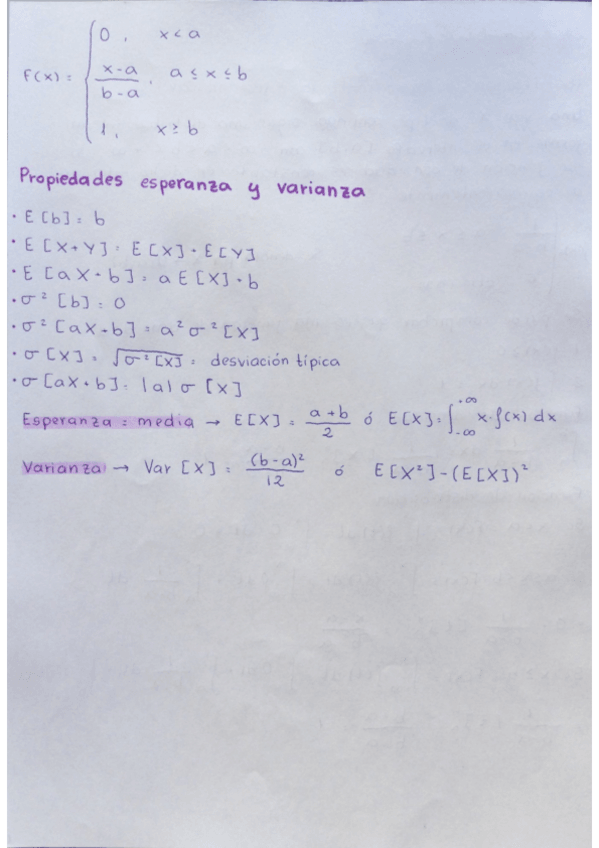 F(x) = { 0, x < a
x-a / b-a, a ≤ x ≤ b
1, x ≥ b
Propiedades esperanza y varianza
· E[b] = b
· E[X+Y] = E[X] + E[Y]
· E[aX+b] = aE[X]+b
· σ²[b] = 0
· σ²[aX+b] = a²σ²[X]
· σ[X] = √σ²[X] = desviación típica
· σ[aX+b] = |a|σ[X]
Esperanza = media → E[X] = a+b / 2 ó E[X] = ∫_{-∞}^{+∞} x·f(x) dx
Varianza → Var[X] = (b-a)² / 12 ó E[X²]-(E[X])²